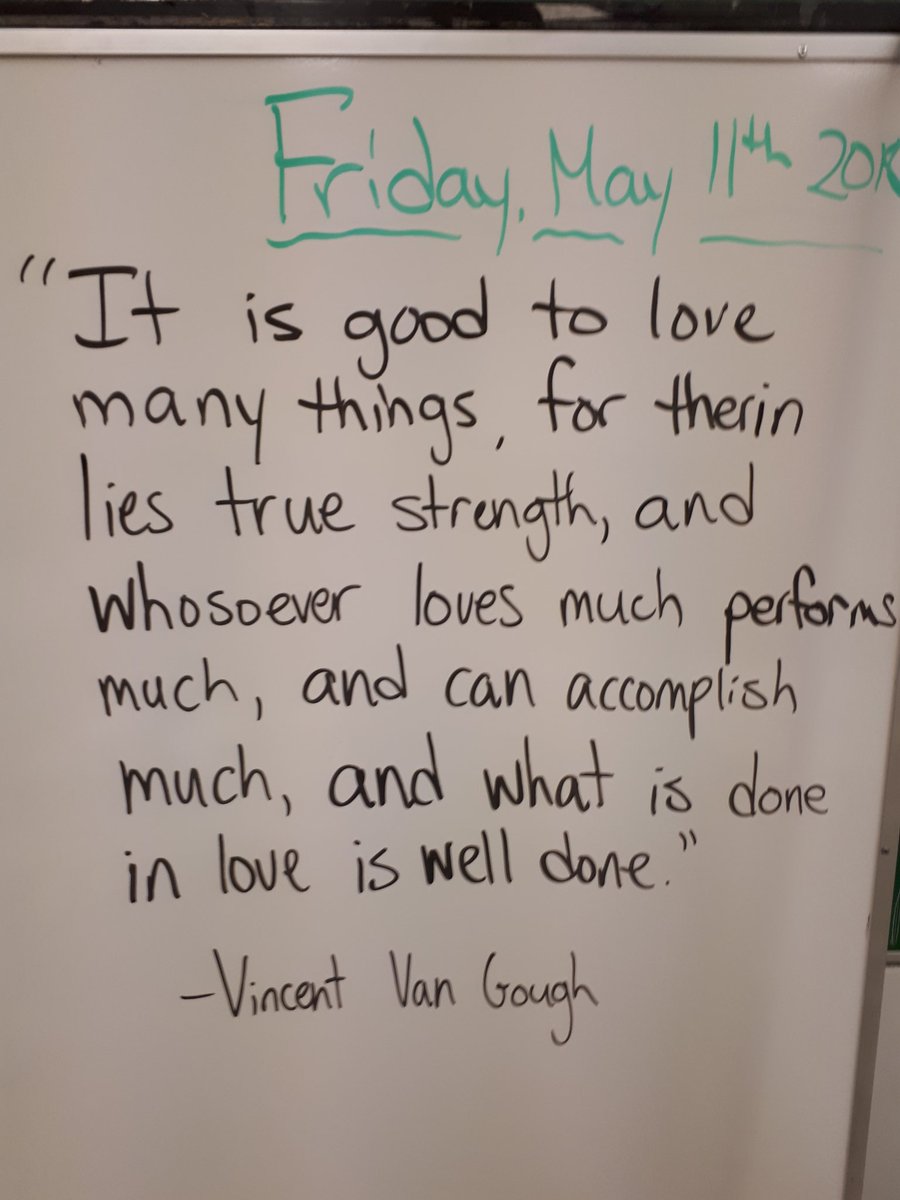 Friday, May 11th 2018
"It is good to love
many things, for therin
lies true strength, and
whosoever loves much performs
much, and can accomplish
much, and what is done
in love is well done."
-Vincent Van Gough